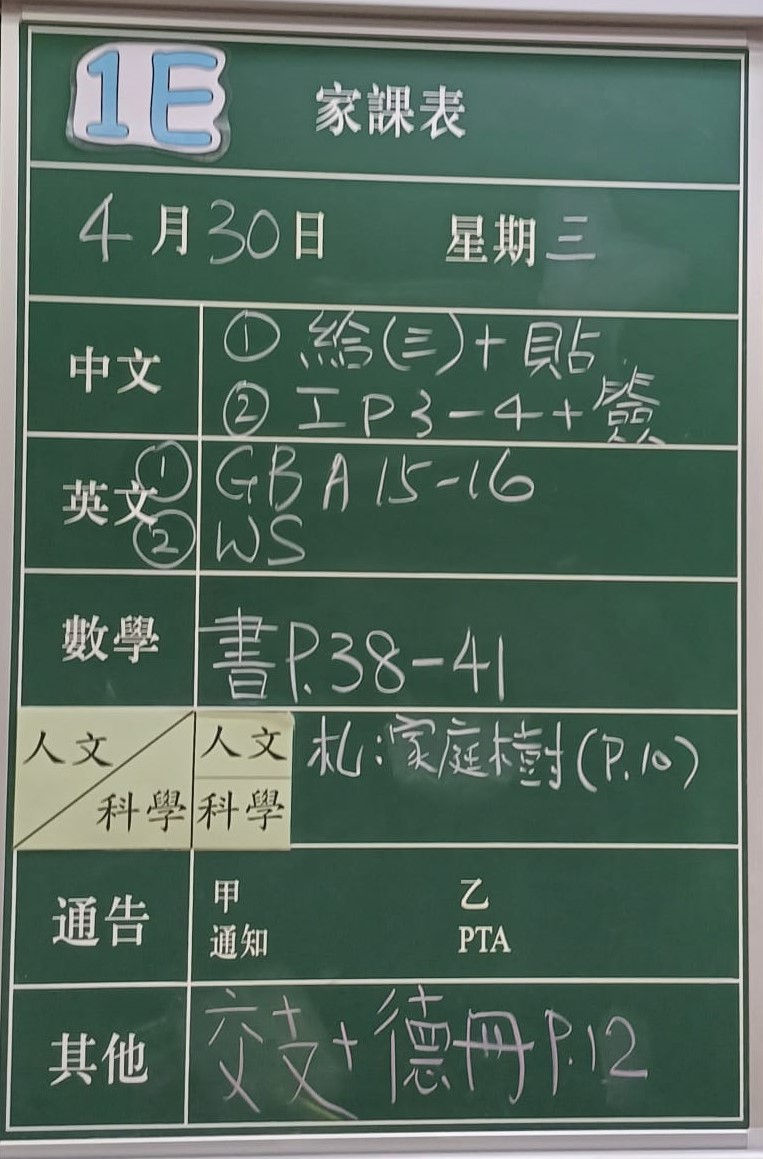 1E 家課表
4月30日 星期三
中文 ① 給(三)+貼
② 工P3-4+簽
英文 ① GBA15-16
② WS
數學 書P.38-41
人文 科學 人文 札:家庭樹(P.10)
科學
通告 甲 乙
通知 PTA
其他 交支+德冊P.12